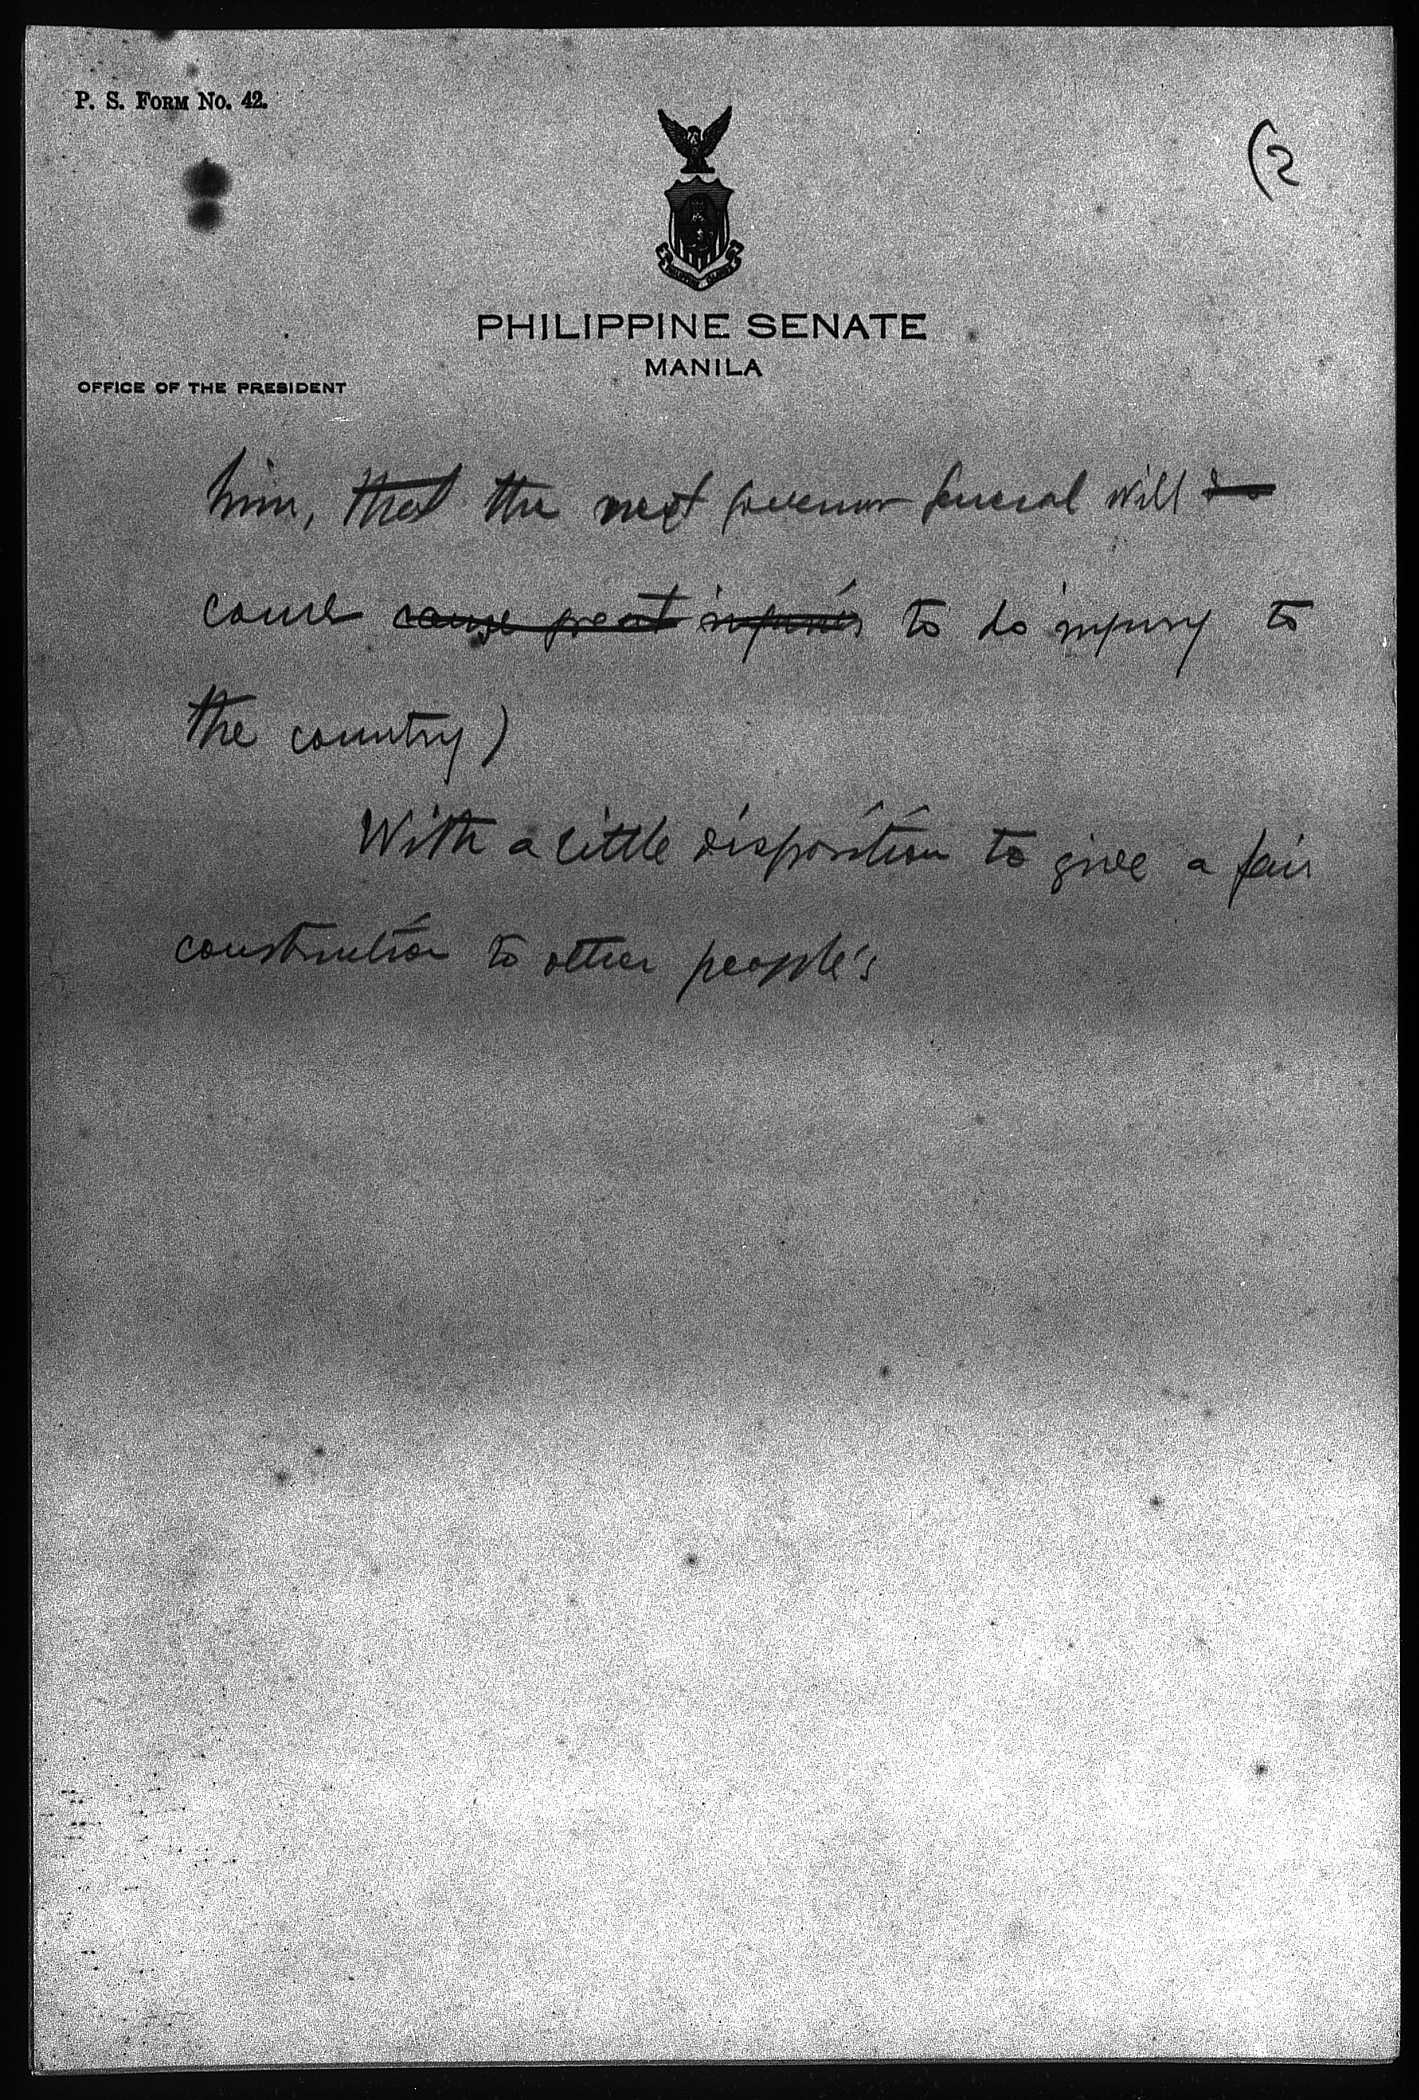 P. S. FORM No. 42.
(2
PHILIPPINE SENATE
MANILA
OFFICE OF THE PRESIDENT
him, that the next Governor General will
come cause great injuries to do injury to
the country)
With a little disposition to give a fair
construction to other people's